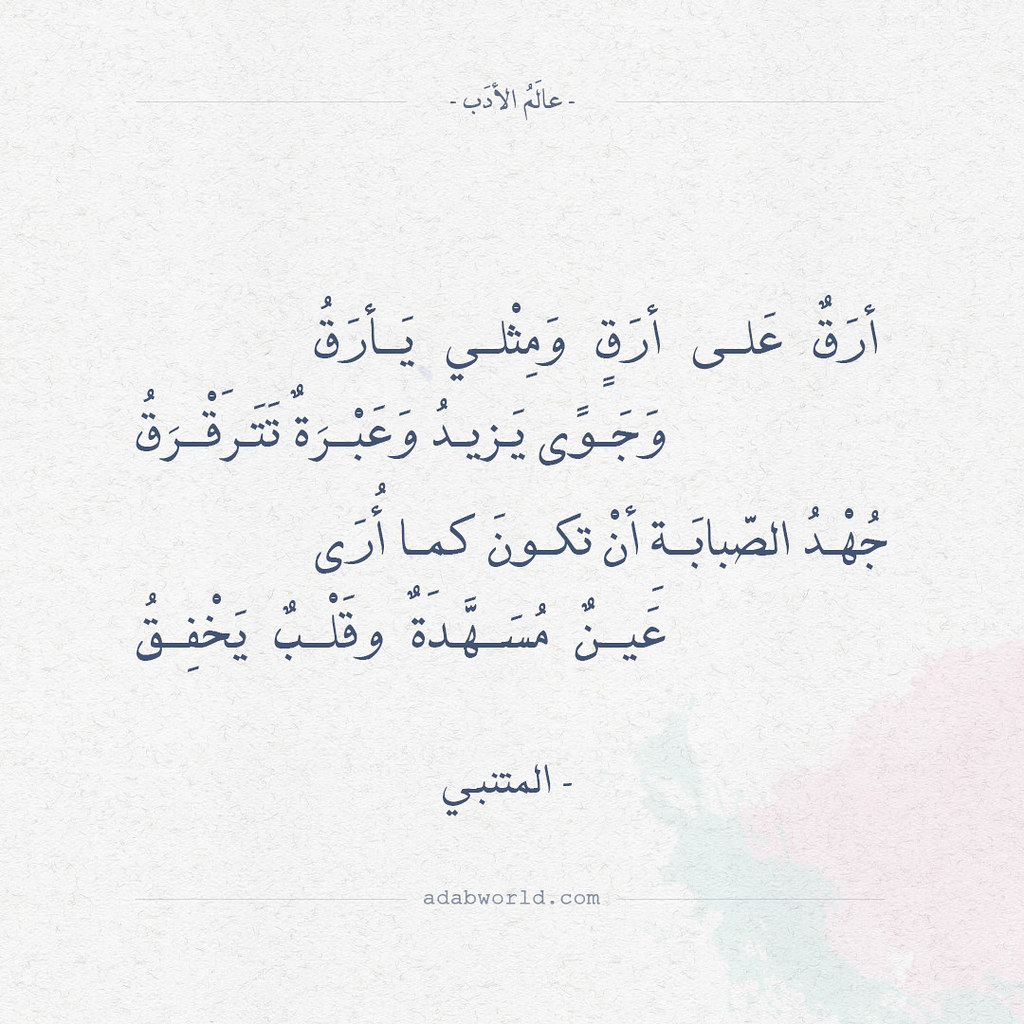 - عالَمُ الأدَب -
أرَقٌ عَلى أرَقٍ وَمِثْلي يَأرَقُ
وَجَوًى يَزيدُ وَعَبْرَةٌ تَتَرَقْرَقُ
جُهْدُ الصّبابَة أنْ تكونَ كما أُرَى
عَينٌ مُسَهَّدَةٌ وقَلْبٌ يَخْفِقُ
- المتنبي
adabworld.com